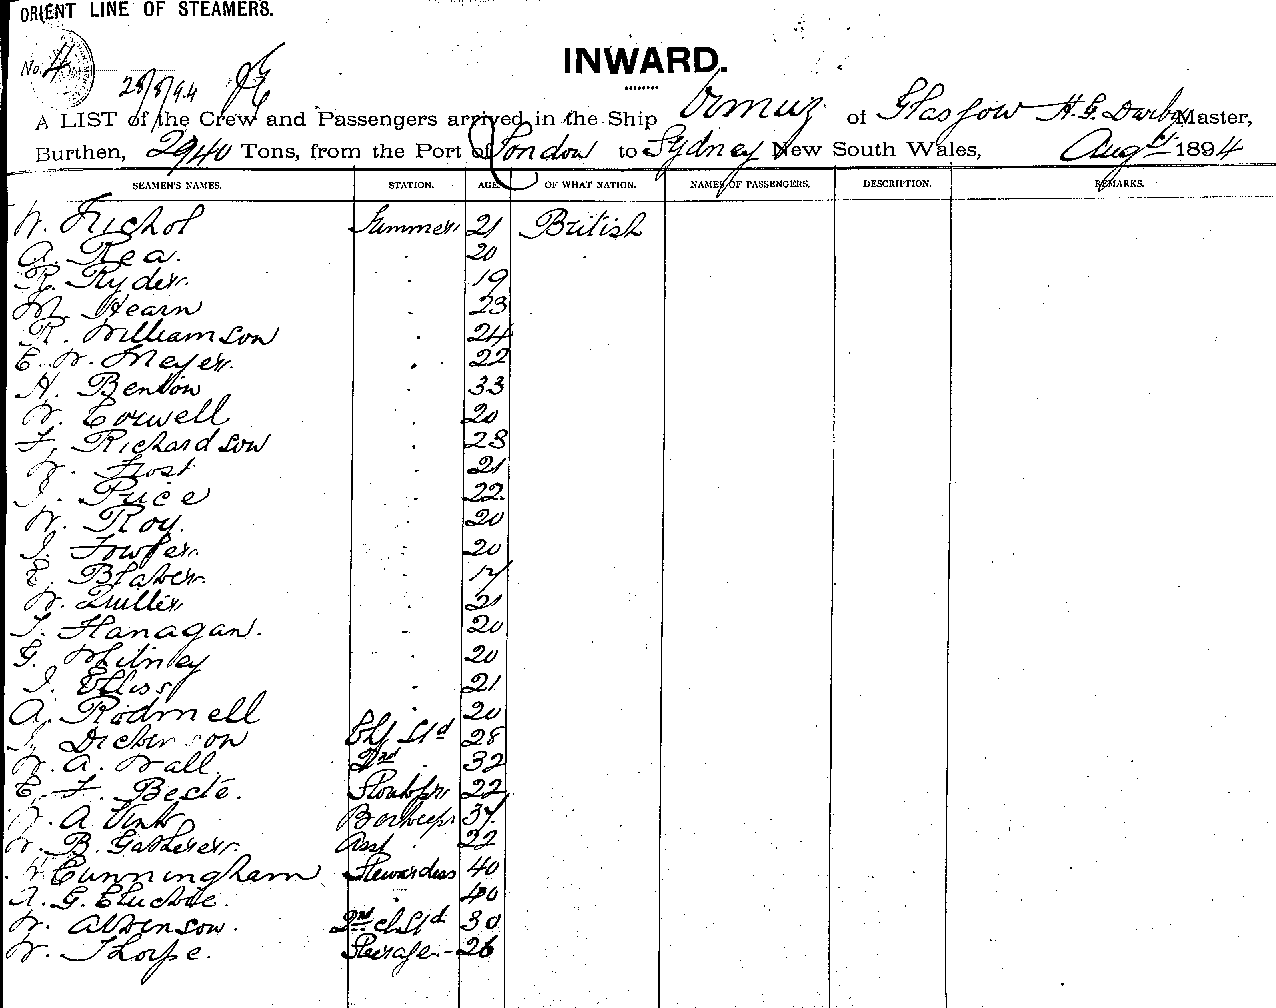 ORIENT LINE OF STEAMERS.
INWARD.
No. 4
28/8/94
A LIST of the Crew and Passengers arrived in the Ship Ormuz of Glasgow H. G. Darby Master,
Burthen, 2940 Tons, from the Port of London to Sydney New South Wales, Augt 1894
SEAMEN'S NAMES. STATION. AGE. OF WHAT NATION. NAMES OF PASSENGERS. DESCRIPTION. REMARKS.
W. Nichol 21 British
A. Rea. 20
R. Ryder. 19
M. Hearn 23
R. Williamson 24
E. W. Meyer. 22
H. Benton 33
W. Corwell 20
F. Richardson 23
W. Frost 21
J. Price 22
W. Roy. 20
J. Fowler. 20
E. Blaber. 17
W. 21
T. Flanagan. 20
G. 20
J. Elliss 21
A. Rodmell 20
J. Dickinson Chf Std 28
W. A. Wall 2nd 32
E. F. Beste. 22
W. A. 37
W. B. Gatherer Asst 22
Cunningham Stewardess 40
A. G. 40
W. Atkinson. 2nd cl Std 30
W. Thorpe. Steerage - 26